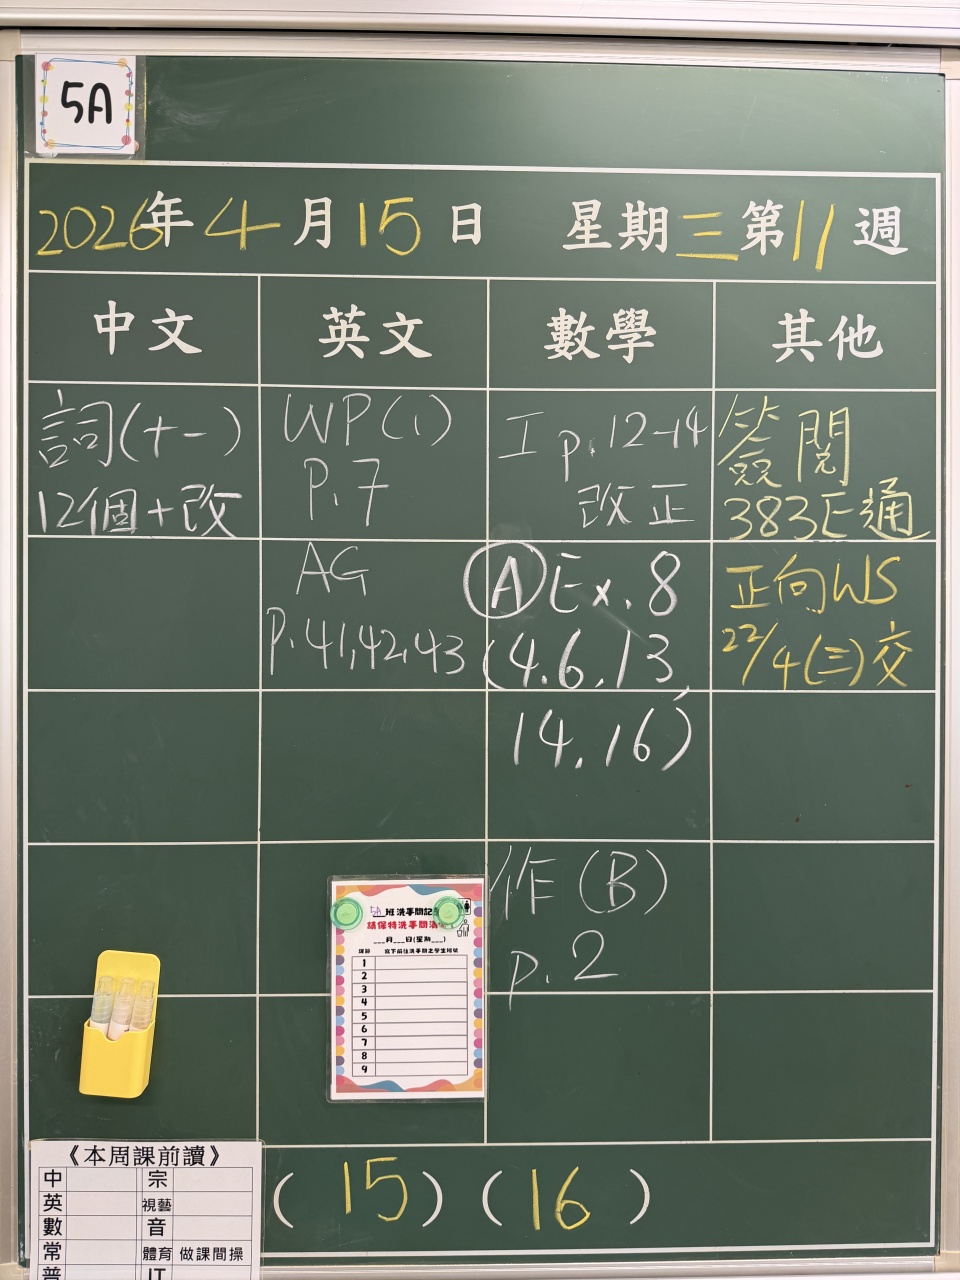 5A
2026年4月15日 星期三第11週
中文 英文 數學 其他
詞(十一)
12個+改
WP(1)
P.7
AG
P.41,42,43
I p.12-14
改正
Ⓐ Ex.8
(4.6,13,
14,16)
作(B)
p.2
簽閱
383E通
正向WS
22/4(三)交
5A班洗手間記
請保持洗手間清
___月___日(星期___)
1
2
3
4
5
6
7
8
9
《本周課前讀》
中 宗
英 視藝
數 音
常 體育 做課間操
普 IT
(15)(16)